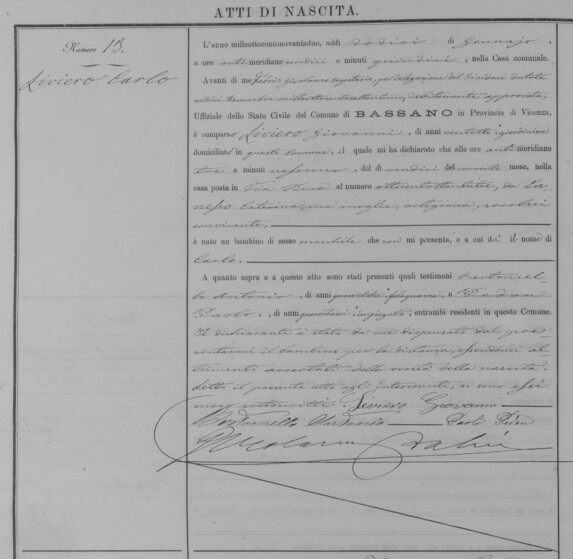 ATTI DI NASCITA.
Numero 13.
Liviero Carlo
L'anno milleottocentonovantadue, addì dodici di Gennajo,
a ore antimeridiane undici e minuti quindici, nella Casa comunale.
Avanti di me Fabris Girolamo Segretario, per delegazione del Sindaco datata
milleottocento debitamente approvata,
Uffiziale dello Stato Civile del Comune di BASSANO in Provincia di Vicenza,
è comparso Liviero Giovanni, di anni ventotto, giardiniere
domiciliato in questo Comune, il quale mi ha dichiarato che alle ore antimeridiane
tre e minuti nessuno, del dì undici del corrente mese, nella
casa posta in Via al numero ottocentottantatre, da
Caterina, sua moglie, artigiana, secolui
convivente,
è nato un bambino di sesso maschile che non mi presenta, e a cui dà il nome di
Carlo.
A quanto sopra e a questo atto sono stati presenti quali testimoni Bertoncel-
lo Antonio, di anni falegname, e
Paolo, di anni impiegato, entrambi residenti in questo Comune.
Il dichiarante è stato da me dispensato dal pre-
sentarmi il bambino per la distanza, essendomi al-
trimenti accertato della verità della nascita.
Letto il presente atto agli intervenuti, si sono essi
meco sottoscritti. Liviero Giovanni
Bertoncello Antonio Paolo